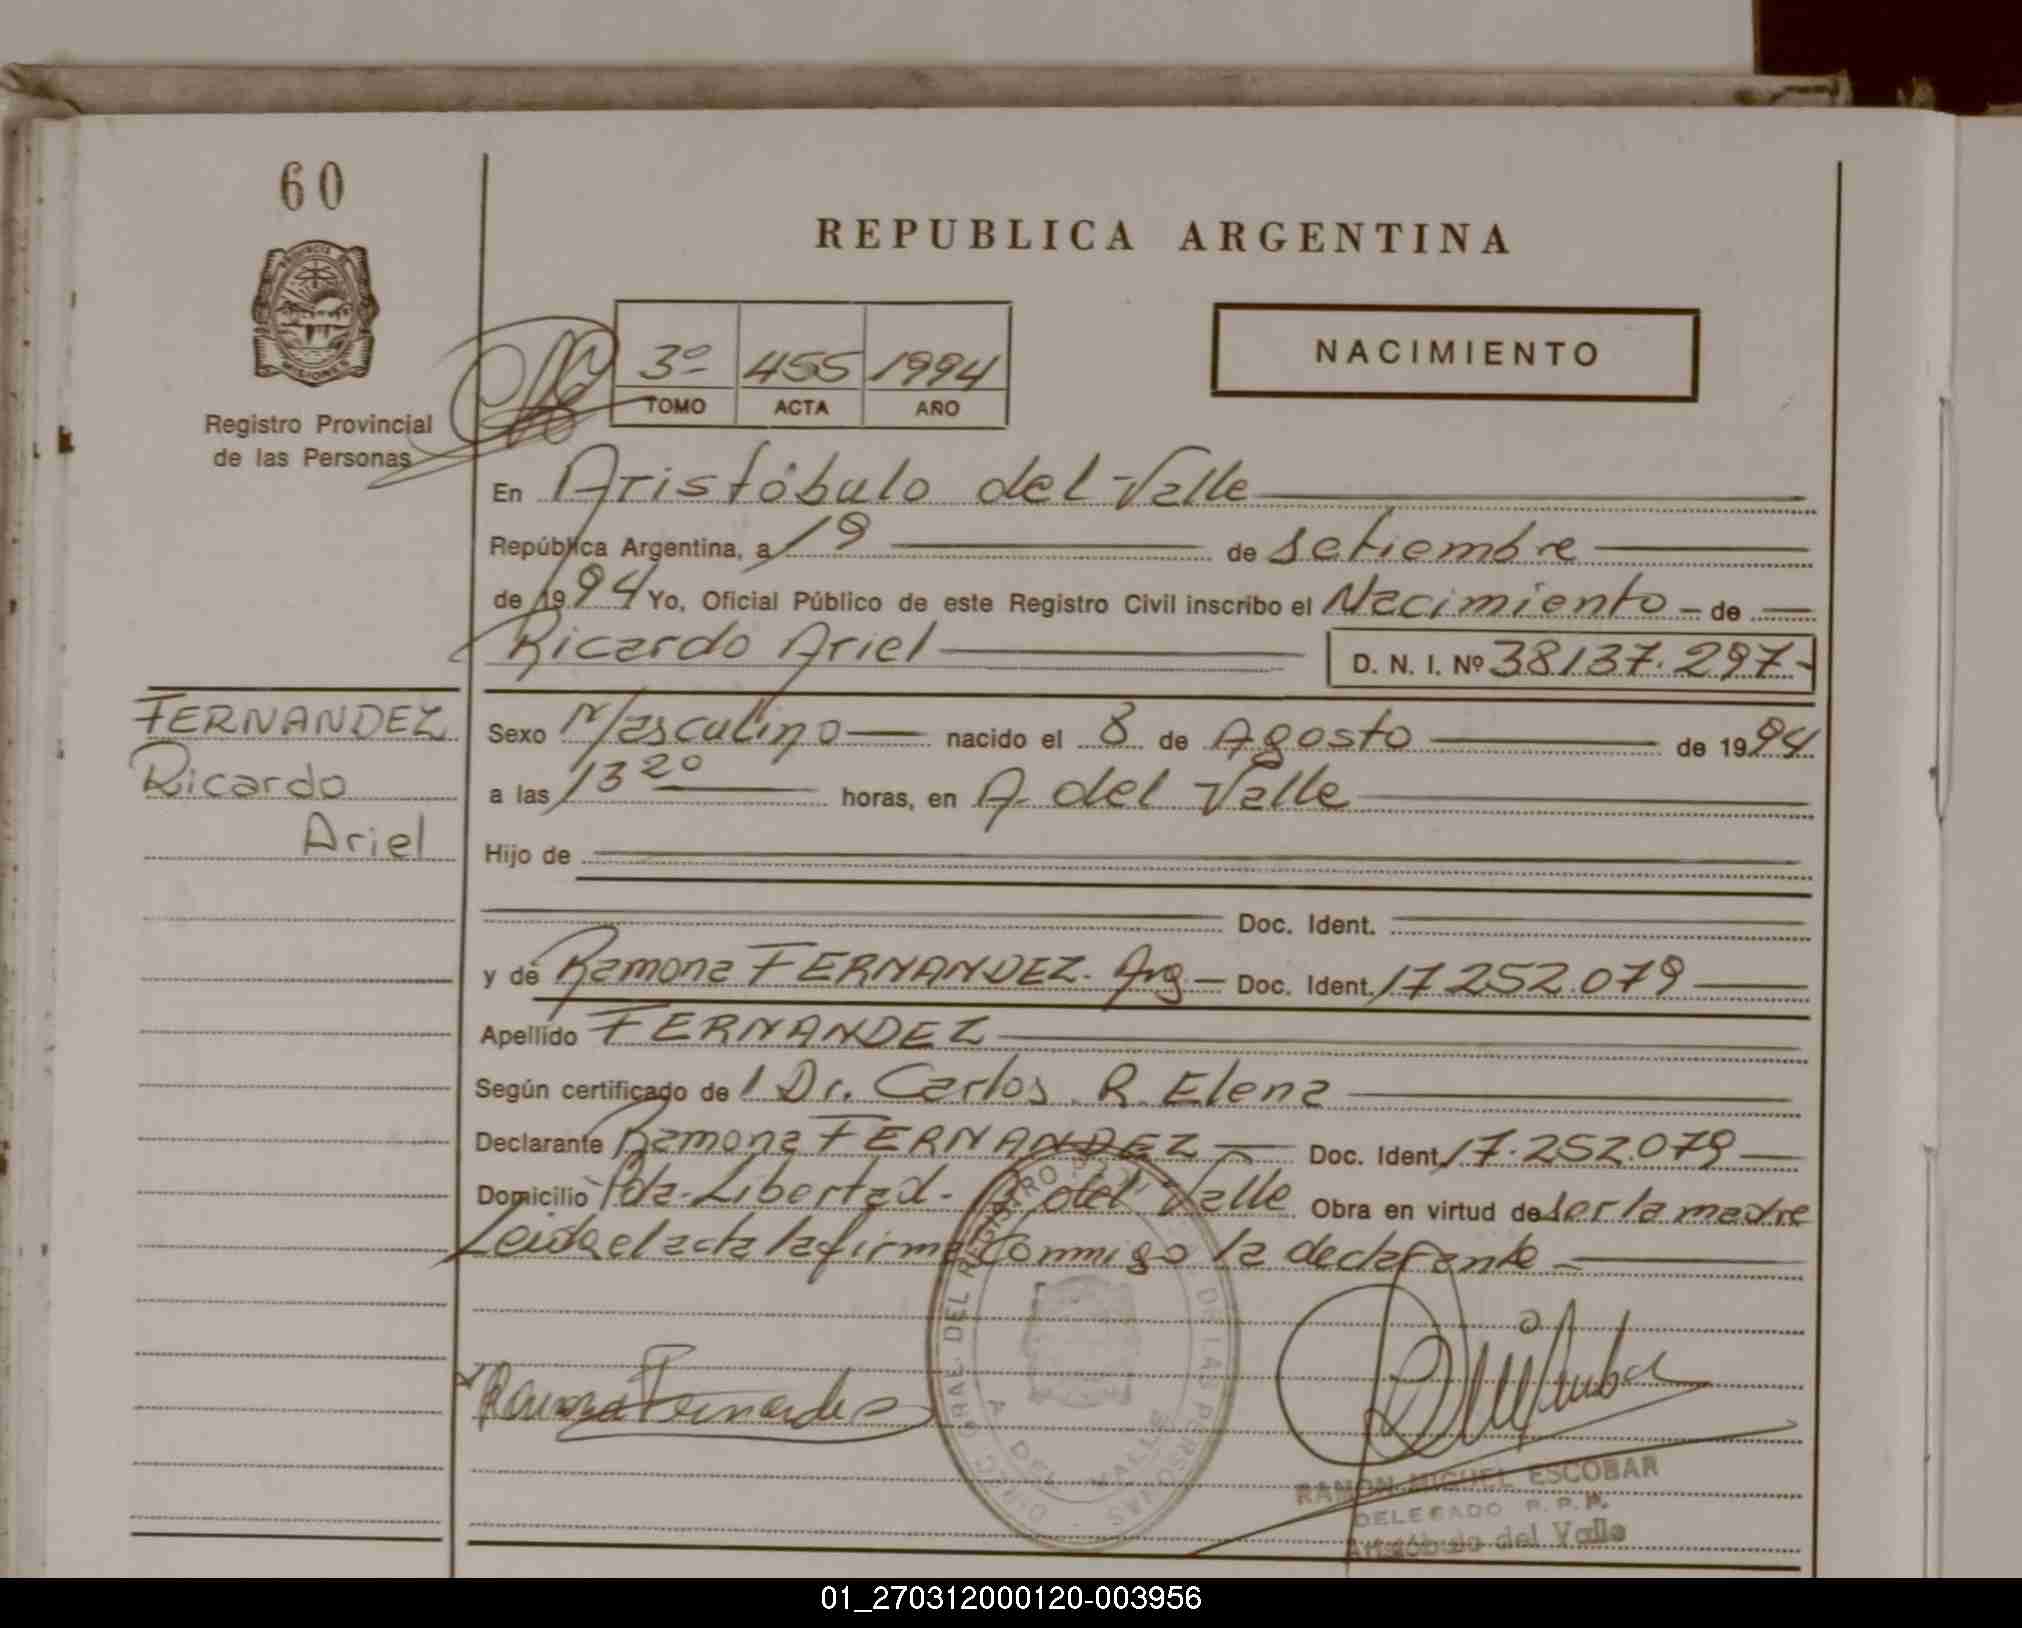 60
REPUBLICA ARGENTINA
PROVINCIA DE MISIONES
Registro Provincial
de las Personas
3º 455 1994
TOMO ACTA AÑO
NACIMIENTO
En Aristóbulo del Valle
República Argentina, a 19 de setiembre
de 1994 Yo, Oficial Público de este Registro Civil inscribo el Nacimiento - de
Ricardo Ariel D. N. I. Nº 38.137.297-
FERNANDEZ
Ricardo
Ariel
Sexo Masculino nacido el 8 de Agosto de 1994
a las 13 20 horas, en A. del Valle
Hijo de
Doc. Ident.
y de Ramona FERNANDEZ. Arg- Doc. Ident. 17.252.079
Apellido FERNANDEZ
Según certificado de l Dr. Carlos R. Elena
Declarante Ramona FERNANDEZ Doc. Ident. 17.252.079
Domicilio Pda. Libertad - A. del Valle Obra en virtud de ser la madre
Leida el acta la firma conmigo la declarante
Ramona Fernandez
DEL REGISTRO DE LAS PERSONAS
A. DEL VALLE
RAMON MIGUEL ESCOBAR
DELEGADO R. P. P.
Aristóbulo del Valle
01_270312000120-003956